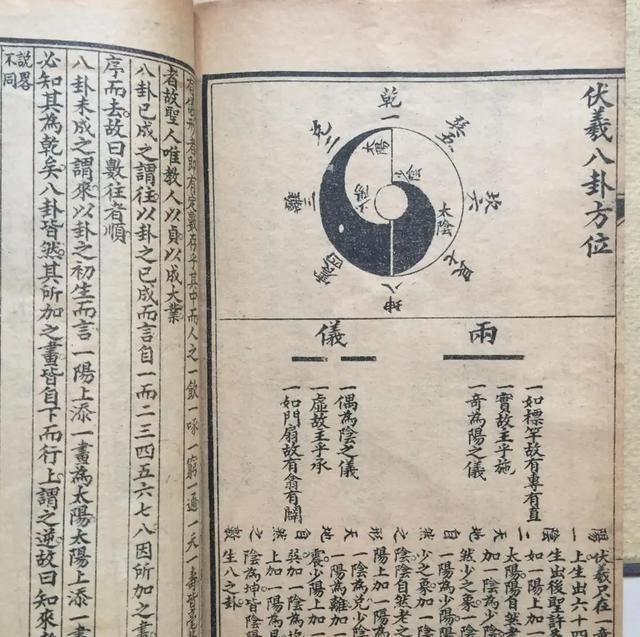 伏羲八卦方位
乾一
兌二
離三
震四
巽五
坎六
艮七
坤八
太陽
少陰
太陰
兩
一如標竿故有專有直
一實故主乎施
一奇為陽之儀
儀
一偶為陰之儀
一虛故主乎承
一如門扇故有翕有闢
伏羲只在一奇
上生出六十四
生出後聖許
如一陽上加一
太陽陽自然
加一陰為少陰
然少之象加一
少之象加一
陰陰自然老之
陽上加一陽為
一陽為離加一
震少陽上加一
巽加一陰為坎
上加一陽為艮
陰為坤皆陰陽
生八之卦
者故聖人唯教人以貞以成大業
八卦已成之謂往以卦之已成而言自一而二三四五六七八因所加之畫
序而去故曰數往者順
八卦未成之謂來以卦之初生而言一陽上添一畫為太陽太陽上添一畫
必知其為乾矣八卦皆然其所加之畫皆自下而行上謂之逆故曰知來者
說畧
不同